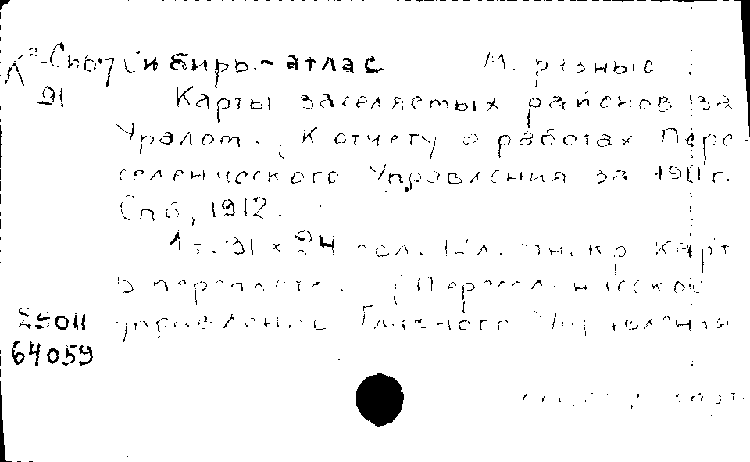 К²-Сиб7 Сибирь-атлас М. разные
91 Карты заселяемых районов за
Уралом. К отчету о работах Пере-
селенческого Управления за 1911 г.
Спб, 1912.
1 т. 31 × 24 пол. 12 л. карт
в переплете. (Переселенческое
25011 управление Главного Управления
64059